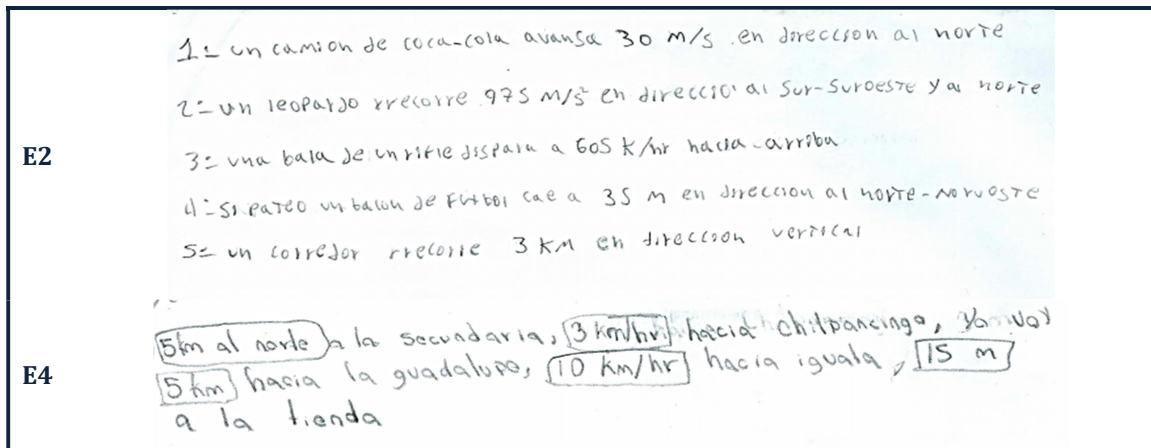 1= un camion de coca-cola avansa 30 m/s en direccion al norte
2= un leopardo rrecorre 975 M/s² en direccio al Sur-Suroeste y al norte
E2
3= una bala de un rifle dispara a 605 K/hr hacia arriba
4= Si pateo un balon de Futbol cae a 35 m en direccion al norte-Noruoste
5= un corredor rrecorre 3 KM en direccion vertical
5km al norte a la secundaria, 3 km/hr hacia chilpancingo, Yo voy
E4
5 km hacia la guadalupe, 10 km/hr hacia iguala, 15 m
a la tienda